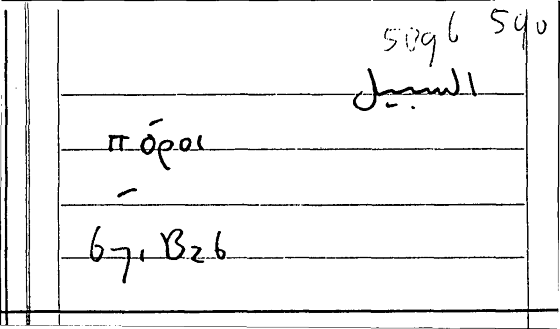 5096 590
السبيل
πόροι
67, B26